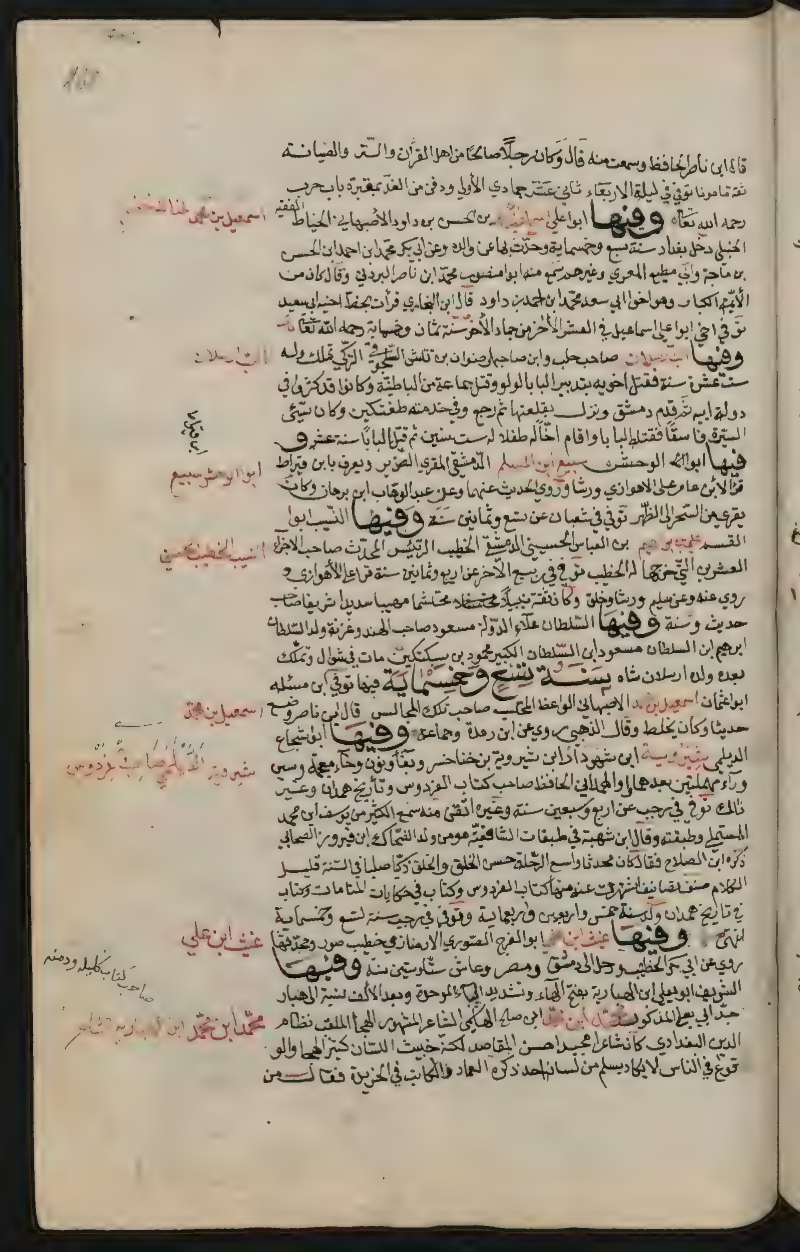 قاله ابن ناصر الحافظ وسمعت منه قال وكان رجلا صالحا من اهل القرآن والستر والصيانة
ثقة مامونا توفي في ليلة الاربعاء ثاني عشر جمادي الأولى ودفن من الغد بمقبرة باب حرب
رحمه الله تعالى وفيها ابو علي اسماعيل بن محمد بن الحسن بن داود الأصبهاني الخياط الفقيه
اسمعيل بن محمد الخياط الحنبلي
الحنبلي دخل بغداد سنة سبع وخمسماية وحدث بها عن والده وعن ابي بكر محمد ابن احمد ابن الحسن
بن ماجة وابي مطيع المصري وغيرهم سمع منه ابو منصور محمد ابن ناصر البردي وقال كان من
الأئمة الكبار وهو اخو ابي سعد محمد ابن احمد بن داود قال ابن النجاري قرأت بخط اخيه ابي سعيد
توفي اخي ابو علي اسماعيل في العشر الأخر من جماد الأخر سنة ثمان وخمسماية رحمه الله تعالى
وفيها الب ارسلان صاحب حلب وابن صاحبها رضوان بن تتش السلجوقي التركي تملك وله
الب ارسلان
ست عشرة سنة فقتل اخويه بتدبير البابا لولو وقتل جماعة من الباطنية وكانوا قد كثروا في
دولة ابيه ثم قدم دمشق ونزل بقلعتها ثم رجع وفي خدمته طغتكين وكان سيئ
السيرة فاسقا فقتله البابا واقام اخا له طفلا له ست سنين ثم قتل البابا سنة عشر و
ابن قيراط
فيها ابو الوحش سبيع ابن المسلم الدمشقي المقري الضرير ويعرف بابن قيراط
ابو الوحش سبيع
قرأ لابن عامر على الاهوازي ورشا وروى الحديث عنهما وعن عبد الوهاب ابن برهان وكان
يقري من السحر الى الظهر توفي في شعبان عن تسع وثمانين سنة وفيها النسيب ابو
القسم علي بن ابرهيم بن العباس الحسيني الدمشقي الخطيب الرئيس المحدث صاحب الاجزاء
النسيب الخطيب الحسيني
العشرين التي خرجها له الخطيب توفي في ربيع الآخر عن اربع وثمانين سنة قرا على الأهوازي و
روى عنه وعن سليم ورشا وخلق وكان ثقة نبيلا محتشما مهيبا سديدا شريفا صاحب
حديث وسنة وفيها السلطان علاء الدولة مسعود صاحب الهند وغزنة ولد السلطان
ابرهيم ابن السلطان مسعود ابن السلطان الكبير محمود بن سبكتكين مات في شوال وتملك
بعده ولده ارسلان شاه سنة تسع وخمسماية فيها توفي ابن مسلمه
ابو عثمان اسمعيل بن محمد الاصبهاني الواعظ المحتسب صاحب تلك المجالس قال ابن ناصر وضع
اسمعيل بن محمد
حديثا وكان يخلط وقال الذهبي روى عن ابن ريذة وجماعة وفيها ابو شجاع
الديلمي شيرويه ابن شهردار ابن شيرويه بن فناخسر وبفاء ونون وخاء معجمة وسين
شيرويه الديلمي صاحب الفردوس
وراء مهملتين بعدها الف والهمداني الحافظ صاحب كتاب الفردوس وتاريخ همدان وغير
ذلك توفي في رجب عن اربع وسبعين سنة وغيره اتقى منه سمع الكثير من يوسف ابن محمد
المستملي وطبقته وقال ابن شهبة في طبقات الشافعية هو من ولد الضحاك ابن فيروز الصحابي
ذكره ابن الصلاح فقال كان محدثا واسع الرحلة حسن الخلق والخلق ذكيا صلبا في السنة قليل
الكلام صنف تصانيف اشتهرت عنه منها كتاب الفردوس وكتاب في حكايات المنامات وكتاب
في تاريخ همدان ولد سنة خمس واربعين واربعماية وتوفي في رجب سنة تسع وخمسماية
انتهى وفيها غيث ابن علي ابو الفرج الصوري الارمنازي خطيب صور ومحدثها
غيث ابن علي
روى عن ابي بكر الخطيب ورحل الى دمشق ومصر وعاش ستا وستين سنة وفيها
صاحب كتاب كليله ودمنه
الشريف ابو يعلى ابن الهبارية بفتح الهاء وتشديد الباء الموحدة وبعد الألف نسبة الى هبار
جد ابي يعلى المذكور محمد ابن محمد ابن صالح الهاشمي الشاعر المشهور الهجا الملقب نظام
محمد ابن محمد ابن الهبارية الشاعر
الدين البغدادي كان شاعرا مجيدا حسن المقاصد لكنه خبيث اللسان كثير الهجا والو
قوع في الناس لا يكاد يسلم من لسانه احد ذكره العماد الكاتب في الخريدة فقال من